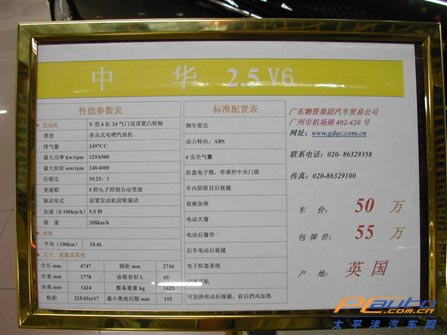 中 华 2.5 V6
性能参数表
发动机 V 型 6 缸 24 气门双顶置凸轮轴
类型 多点式电喷汽油机
排气量 2497CC
最大功率 kw/rpm 129/6500
最大扭矩 nm/rpm 240/4000
压缩比 10.25：1
变速箱 5 档电子控制自动变速
驱动形式 前置发动机前轮驱动
加速 (0-100km/h) 9.5 秒
极 速 208km/h
油耗
平均 (100km) 10.4L
尺寸、重量及其他
全长 mm 4747 轴距 mm 2746
全宽 mm 1778 油箱容积 L 65
全高 mm 1424 整备重量 kg 1625
轮胎 225/65zr17 最小离地间隙 mm 155
标准配置表
倒车雷达
动力转向，ABS
6 安全气囊
防盗电子锁，带遥控中央门锁
车内防眩目后视镜
前座加热
电动天窗
电动后窗帘
后车电动后视镜
电子防盗系统
可加热电动后视镜，前后挡风加热
广东物资集团汽车贸易公司
广州市机场路 402-420 号
网址：www.gdqc.com.cn
联系电话：020- 86329358
传真：020-86329100
车 价： 50 万
包 牌 价： 55 万
产 地： 英 国
PCauto.com.cn
太平洋汽车网